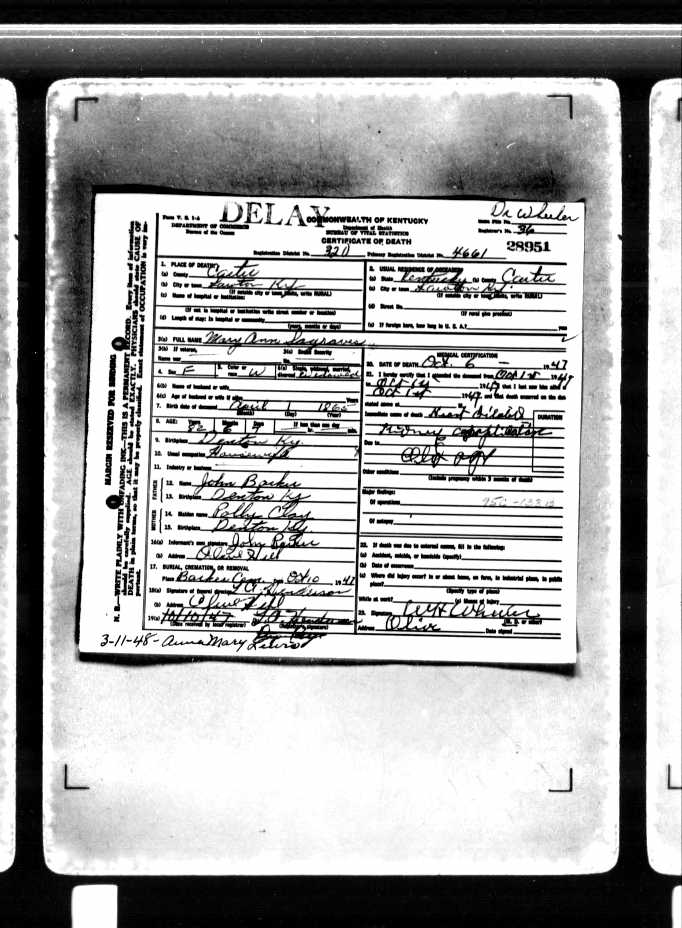 Form V. S. 1-A
DELAY
COMMONWEALTH OF KENTUCKY
Dr Wheeler
DEPARTMENT OF COMMERCE
Bureau of the Census
Department of Health
BUREAU OF VITAL STATISTICS
CERTIFICATE OF DEATH
Registrar's No. 36
28951
Registration District No. 320 Primary Registration District No. 4661
1. PLACE OF DEATH:
(a) County Carter
(b) City or town Lawton Ky.
(If outside city or town limits, write RURAL)
(c) Name of hospital or institution:
(If not in hospital or institution write street number or location)
(d) Length of stay: In hospital or community
(years, months or days)
2. USUAL RESIDENCE OF DECEASED:
(a) State Kentucky (b) County Carter
(c) City or town Lawton Ky.
(If outside city or town limits, write RURAL)
(d) Street No.
(If rural give precinct)
(e) If foreign born, how long in U. S. A.? years
3(a) FULL NAME Mary Ann Sagraves
3(b) If veteran, Name war
3(c) Social Security No.
4. Sex F 5. Color or race W 6(a) Single, widowed, married, divorced Widowed
6(b) Name of husband or wife
6(c) Age of husband or wife if alive Years
7. Birth date of deceased April 1865
(Month) (Day) (Year)
8. AGE: Years 82 Months 6 Days If less than one day
hr. min.
9. Birthplace Denton Ky.
10. Usual occupation Housewife
11. Industry or business
FATHER
12. Name John Barker
13. Birthplace Denton Ky
MOTHER
14. Maiden name Polly Clay
15. Birthplace Denton Ky
16(a) Informant's own signature John Barker
(b) Address Olive Hill
17. BURIAL, CREMATION, OR REMOVAL
Place Barker Cem Oct 10 1947
18(a) Signature of funeral director Henderson
(b) Address Olive Hill
19(a) 10/10/47
(Date received by local registrar) (Registrar's signature)
3-11-48 - Anna Mary Lewis
MEDICAL CERTIFICATION
20. DATE OF DEATH Oct. 6 - 1947
21. I hereby certify that I attended the deceased from Oct 1st 1947
to 1947 that I last saw him alive
Oct 1st 1947 and that death occurred on the date
stated above at
Immediate cause of death Heart Dilated
DURATION
Kidney
Due to
Old age
Other conditions
(Include pregnancy within 3 months of death)
Major findings:
Of operations
Of autopsy
22. If death was due to external causes, fill in the following:
(a) Accident, suicide, or homicide (specify)
(b) Date of occurrence
(c) Where did injury occur? In or about home, on farm, in industrial place, in public
place?
(Specify type of place)
While at work? (e) Means of injury
23. Signature W H Wheeler
(M. D. or other)
Address Olive Date signed
MARGIN RESERVED FOR BINDING
N. B.—WRITE PLAINLY WITH UNFADING INK—THIS IS A PERMANENT RECORD. Every item of information
should be carefully supplied. AGE should be stated EXACTLY. PHYSICIANS should state CAUSE OF
DEATH in plain terms, so that it may be properly classified. Exact statement of OCCUPATION is very im-
portant.